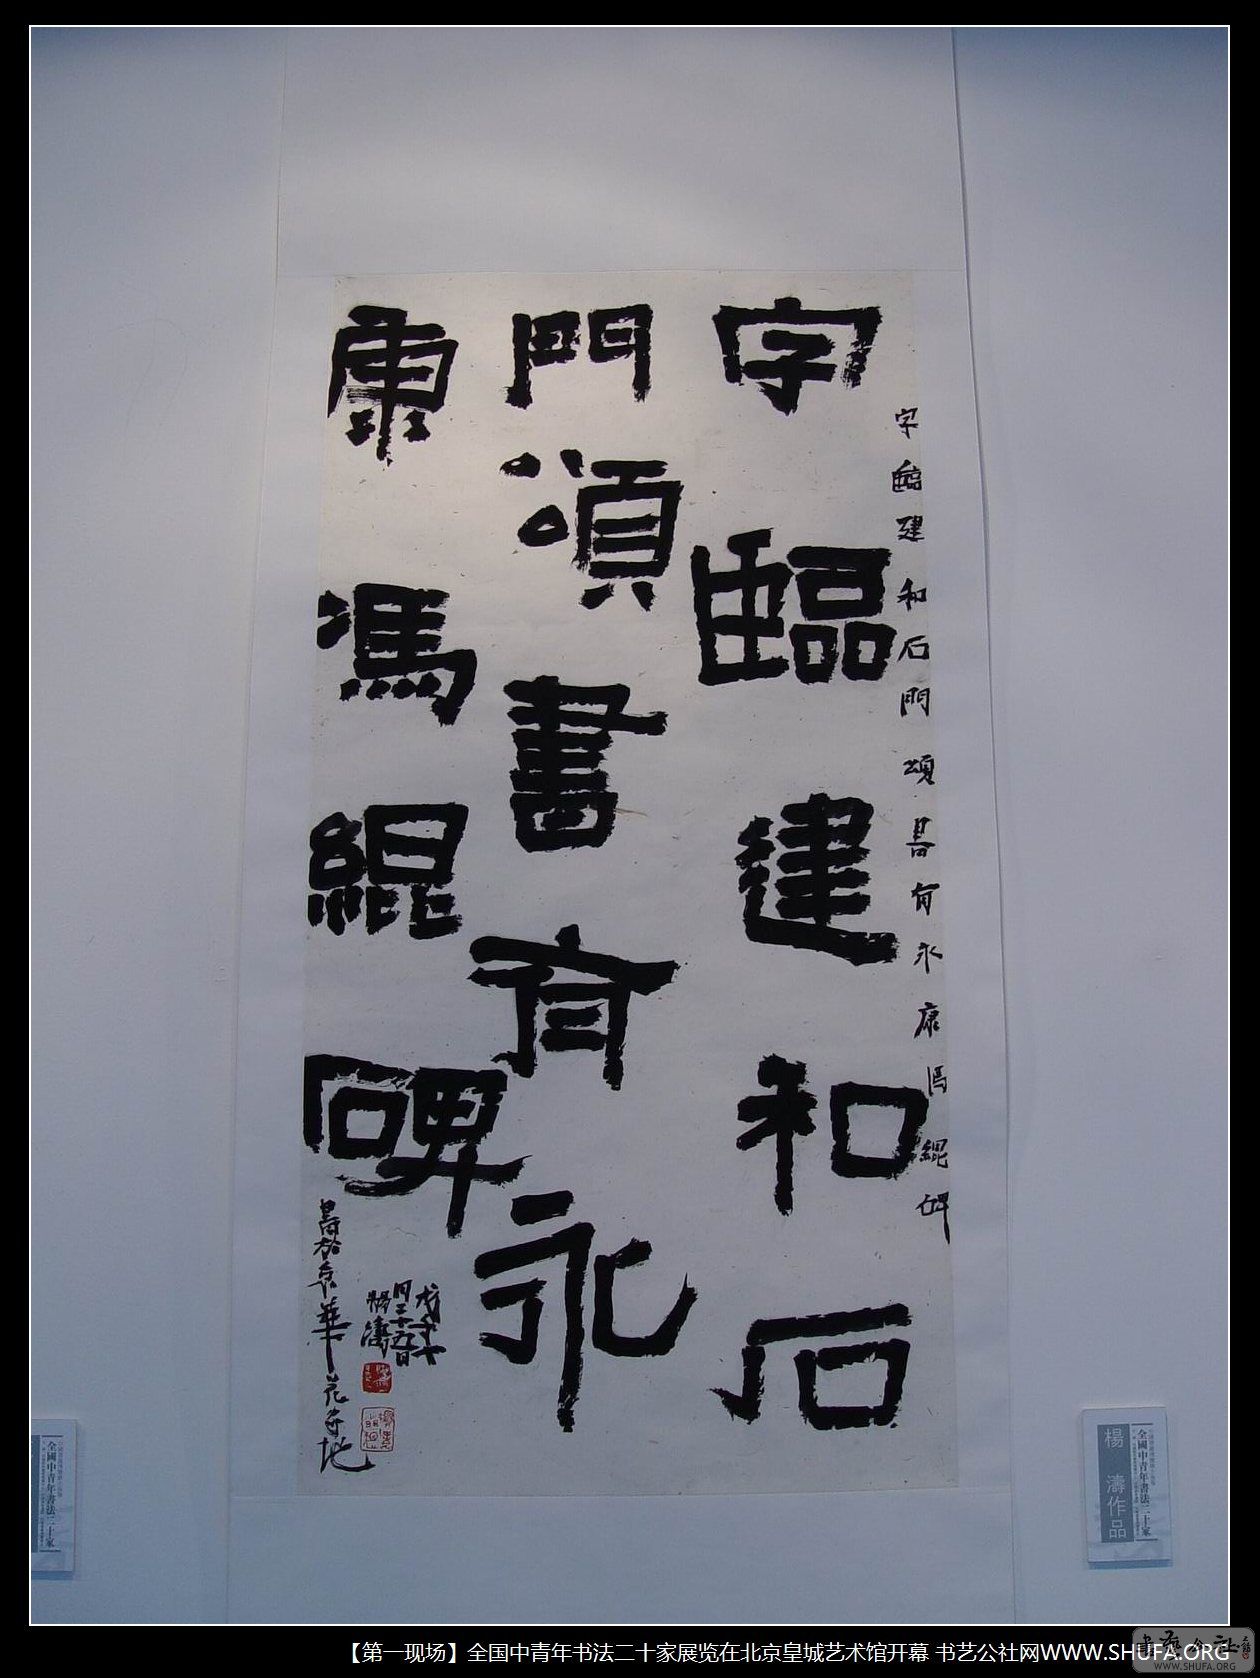 字臨建和石
門頌書有永
康馮緄碑
字臨建和石門頌書有永康馮緄碑
書於京華
月二十五日
楊濤
全國中青年書法二十家
楊濤作品
全國中青年書法二十家
【第一现场】全国中青年书法二十家展览在北京皇城艺术馆开幕 书艺公社网WWW.SHUFA.ORG
WWW.SHUFA.ORG